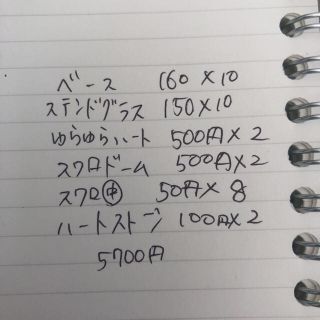 ベース 160×10
ステンドグラス 150×10
ゆらゆらハート 500円×2
スワロドーム 500円×2
スワロ中 50円×8
ハートストーン 100円×2
5700円